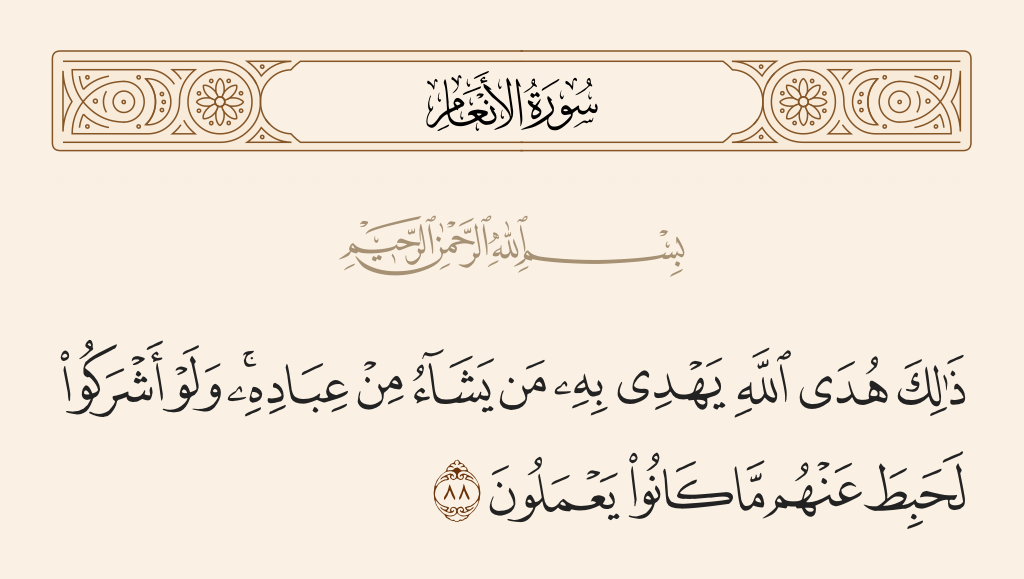 سُورَةُ الأَنْعَامِ
بِسْمِ ٱللَّهِ ٱلرَّحْمَٰنِ ٱلرَّحِيمِ
ذَٰلِكَ هُدَى ٱللَّهِ يَهْدِى بِهِۦ مَن يَشَآءُ مِنْ عِبَادِهِۦ ۚ وَلَوْ أَشْرَكُوا۟
لَحَبِطَ عَنْهُم مَّا كَانُوا۟ يَعْمَلُونَ ٨٨